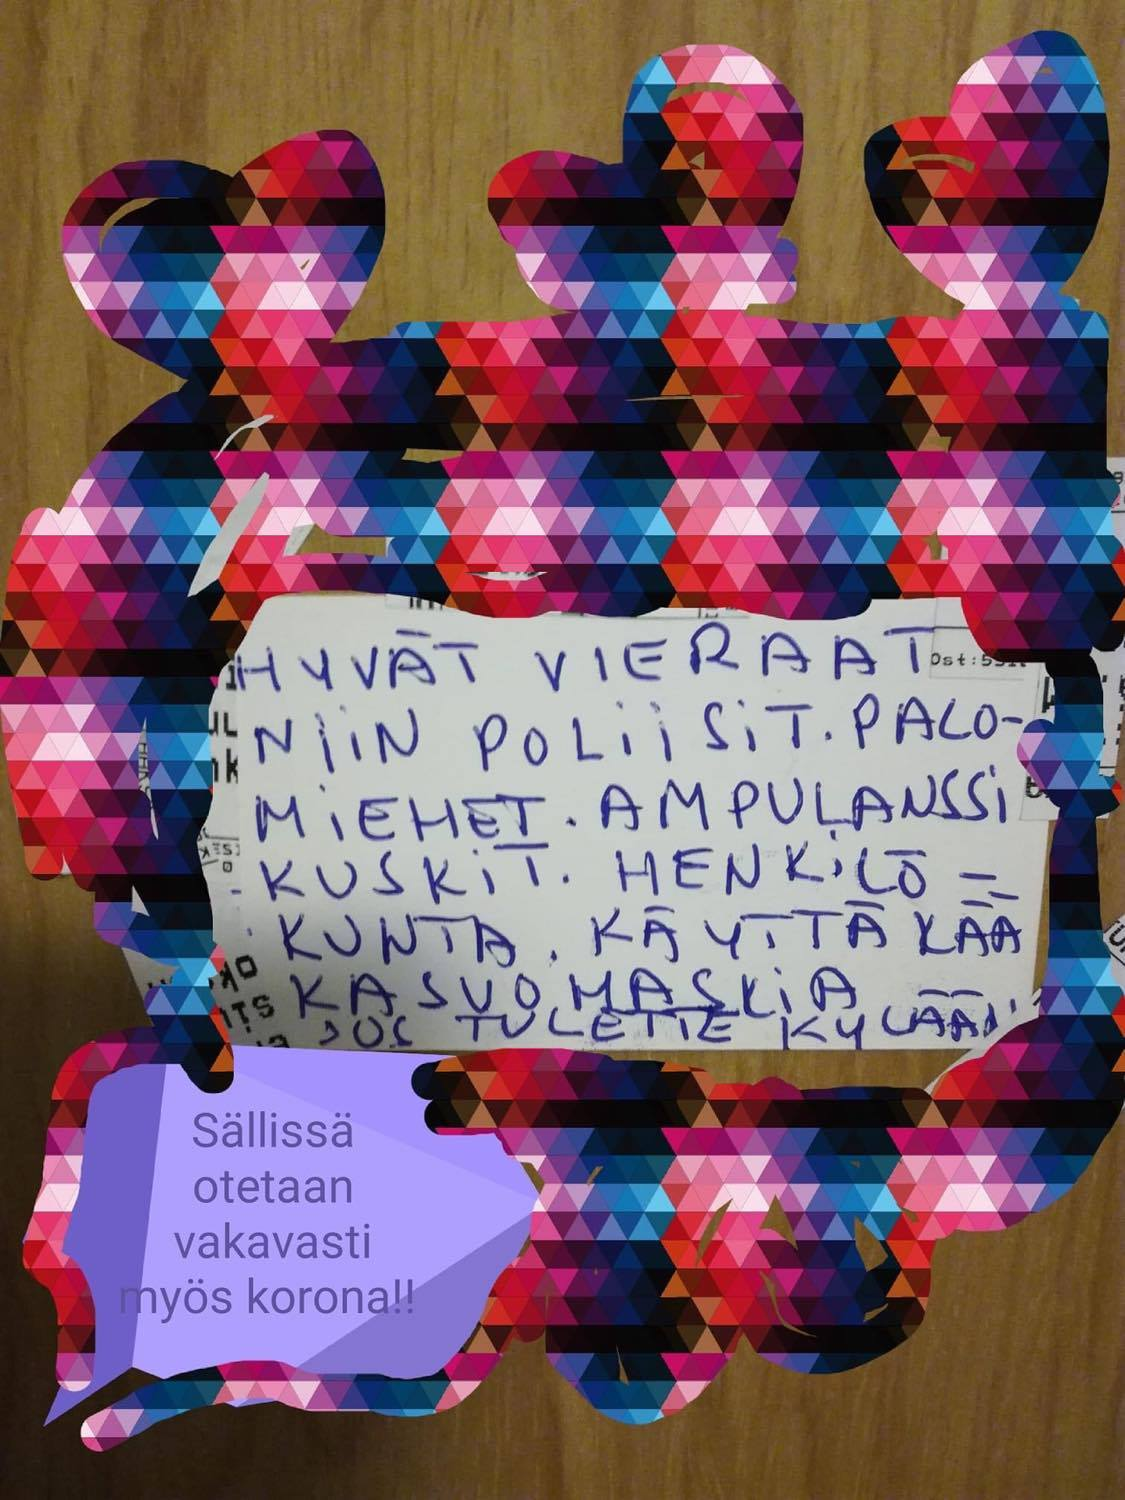 HYVÄT VIERAAT
Ost:
NIIN POLIISIT. PALO-
MIEHET. AMPULANSSI
KUSKIT. HENKILÖ =
KUNTA. KÄYTTÄKÄÄ
KASVOMASKIA
JOS TULETTE KYLÄÄN
Sällissä
otetaan
vakavasti
myös korona!!